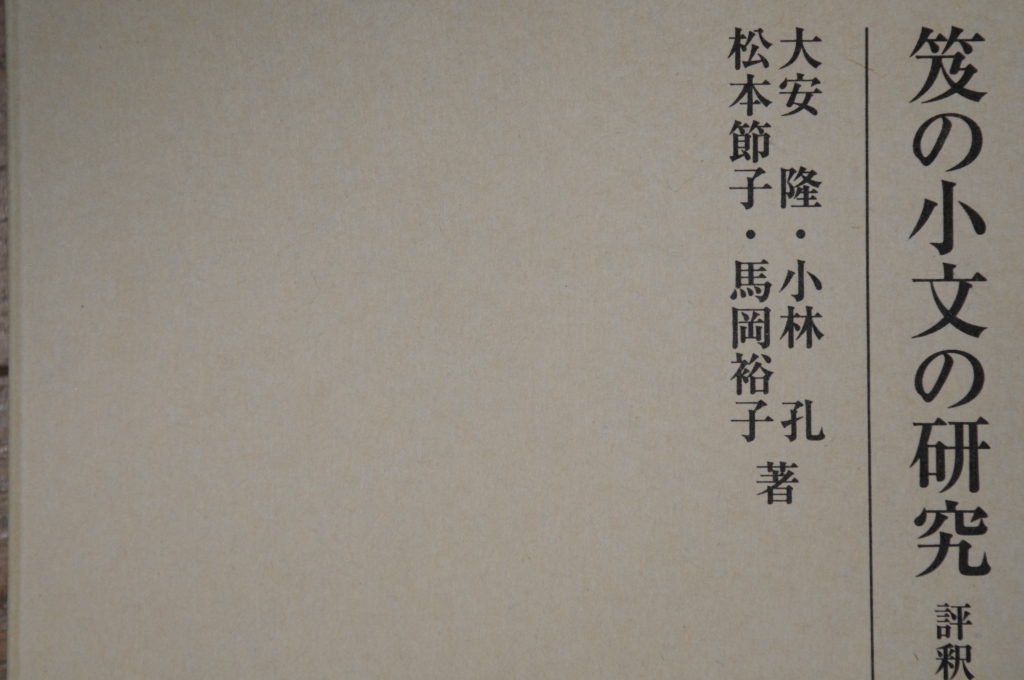 笈の小文の研究 評釈
大安 隆・小林 孔
松本節子・馬岡裕子
著